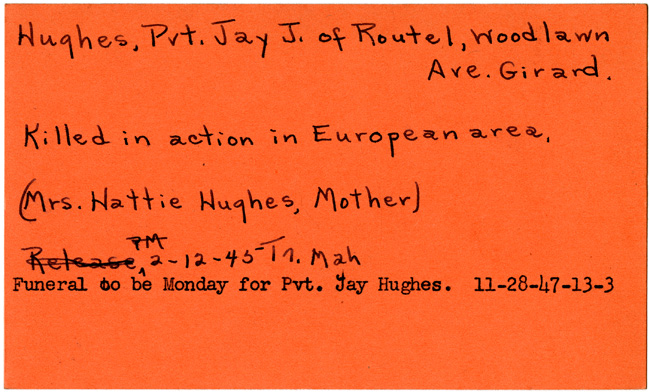 Hughes, Pvt. Jay J. of Route1, Woodlawn
Ave. Girard.
Killed in action in European area.
(Mrs. Hattie Hughes, Mother)
PM
Release, 2-12-45 Mah
Funeral to be Monday for Pvt. Jay Hughes. 11-28-47-13-3